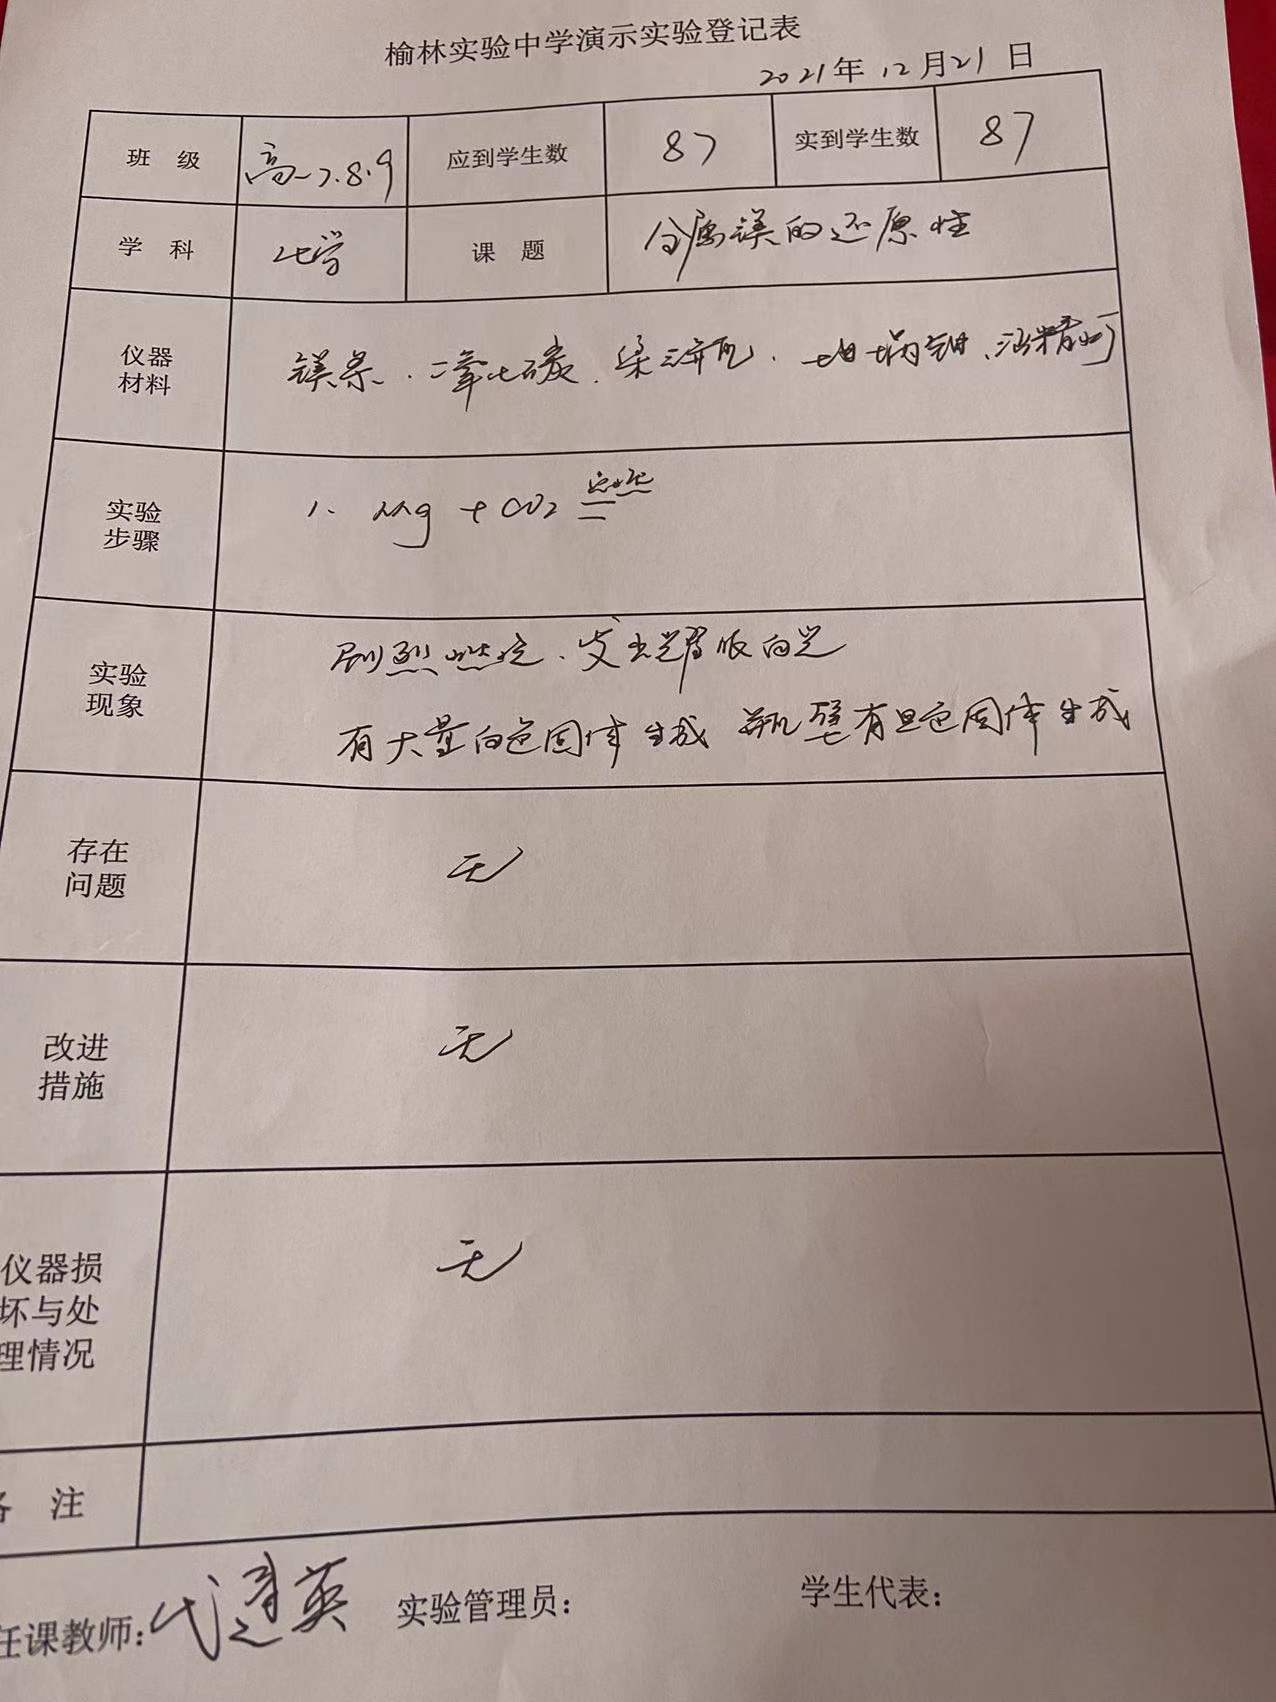 榆林实验中学演示实验登记表
2021年12月21日
班 级 高一7.8.9 应到学生数 87 实到学生数 87
学 科 化学 课 题 金属镁的还原性
仪器
材料
镁条、二氧化碳、集气瓶、坩埚钳、酒精灯
实验
步骤
1. Mg + CO2 点燃 =
实验
现象
剧烈燃烧、发出耀眼白光
有大量白色固体生成 瓶壁有黑色固体生成
存在
问题
无
改进
措施
无
仪器损
坏与处
理情况
无
备 注
任课教师: 代 英 实验管理员: 学生代表: